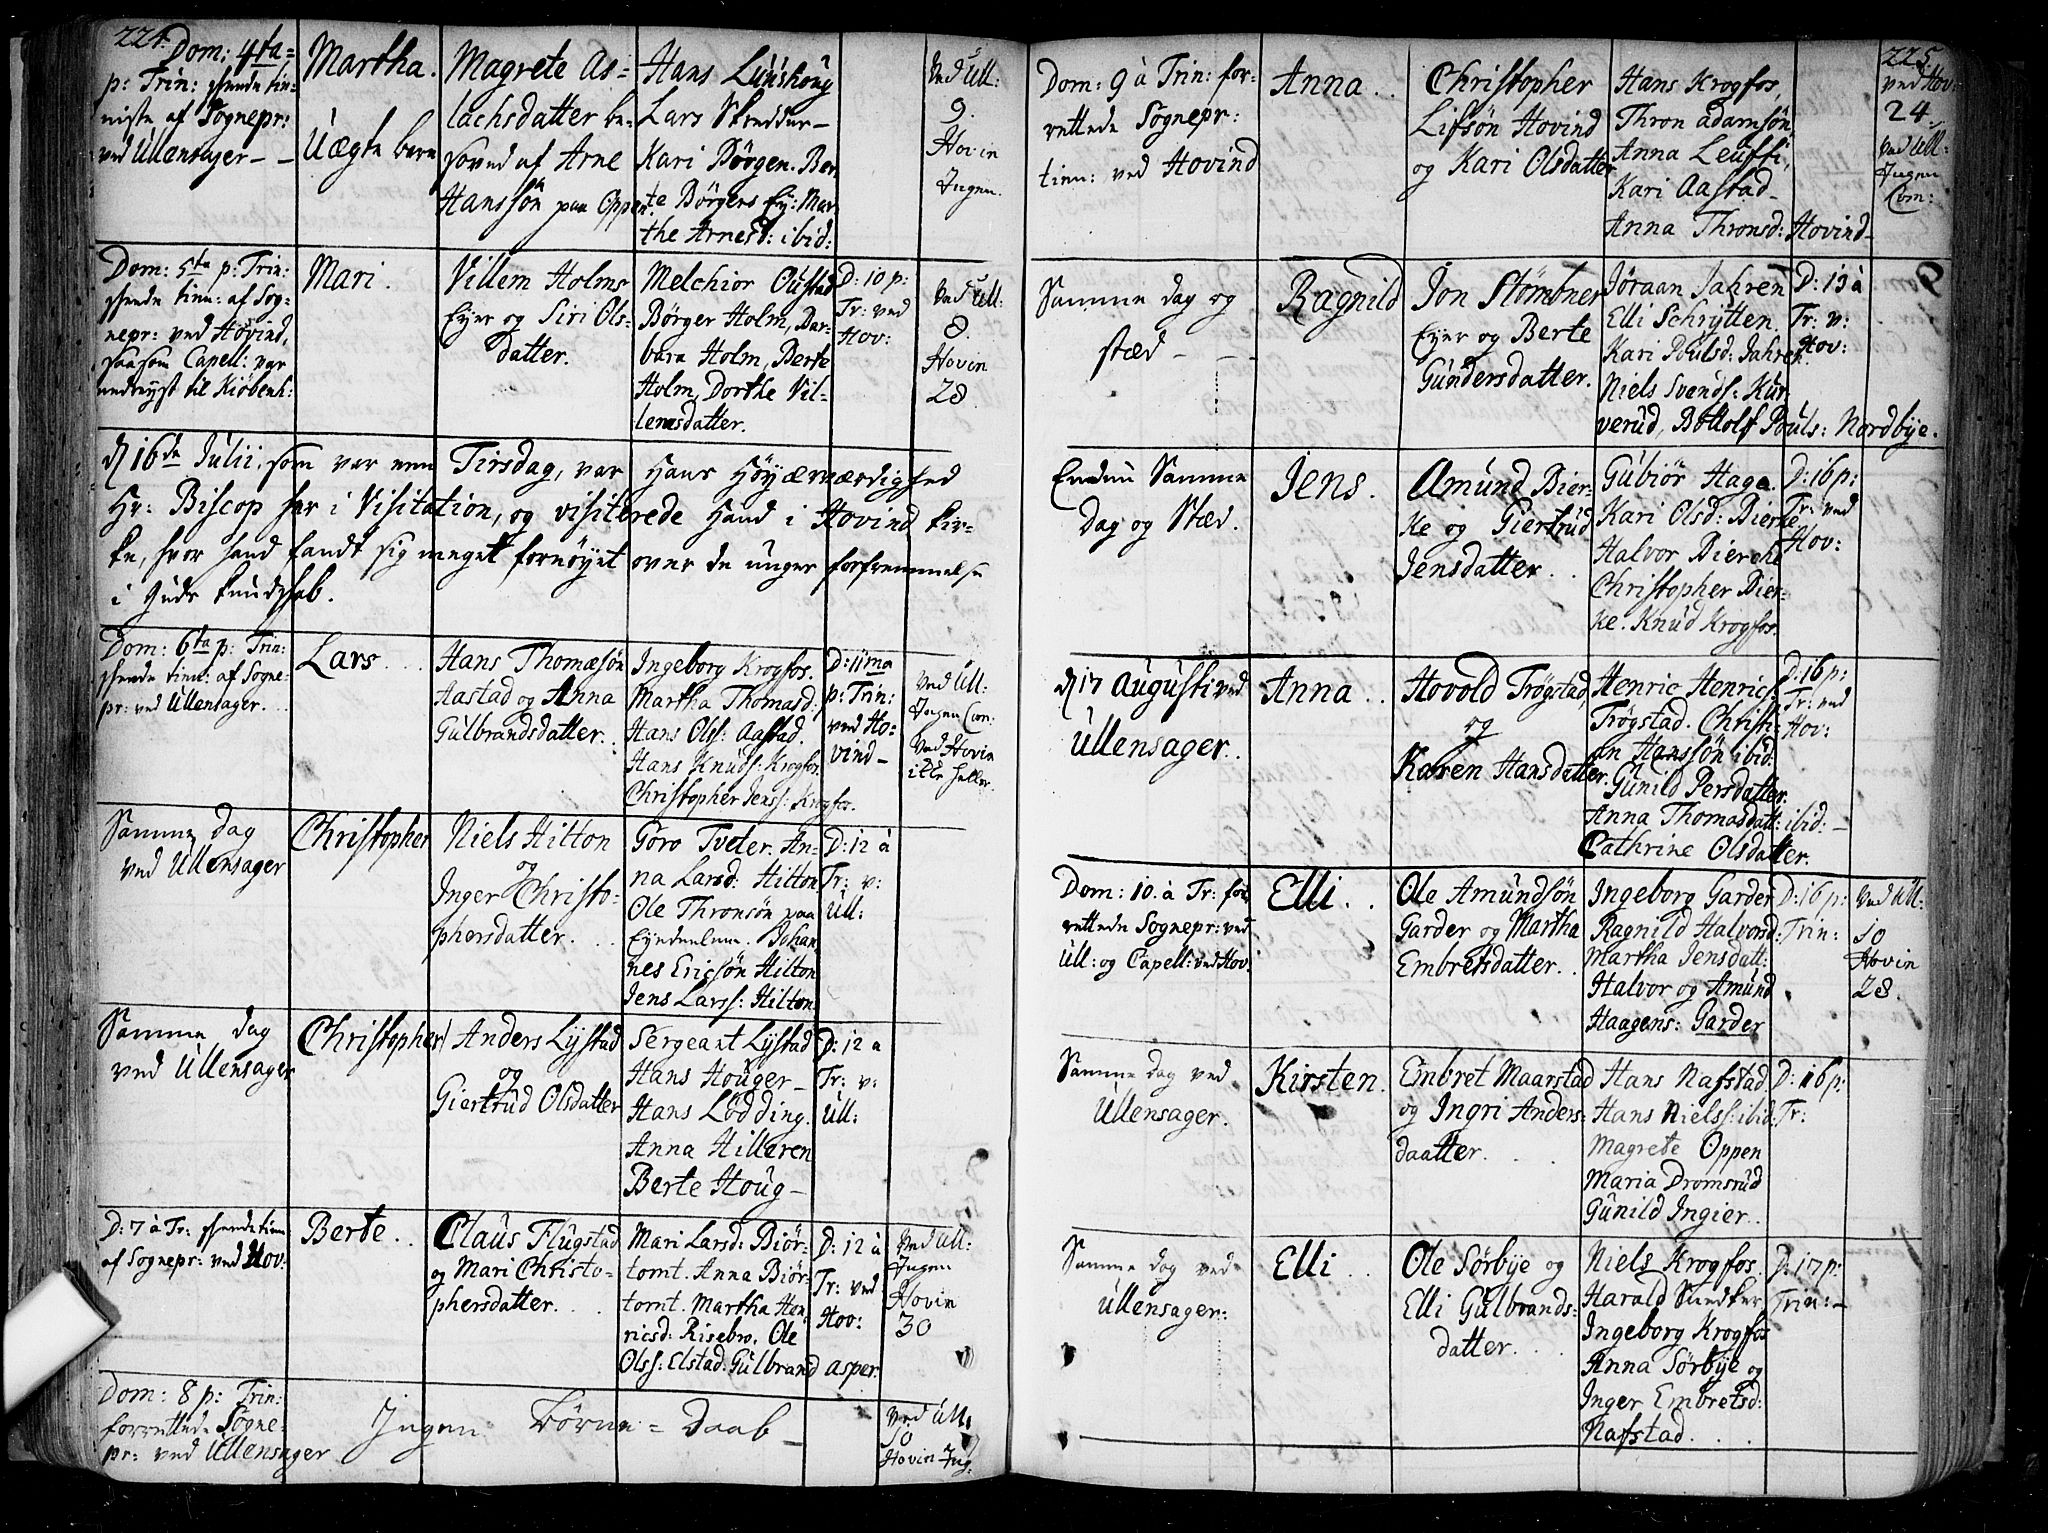 224.
Dom: 4ta
p: Trin: skeede tie-
niste af Sognepr:
ved Ullensager - -
Martha.
Uægte barn
Magrete As-
lachsdatter be-
soved af Arne
Hanssön paa Oppen.
Hans
Lars Skredder -
Kari Börgen. Ber
te Börgens Ey: Mar
the Arnesd: ibid:
Ved Ull:
9.
Hovin
Ingen.
Dom: 5ta p: Trin:
skeede tien: af Sog-
nepr: ved Hovind,
saasom Capell: var
nedreyst til Kiöbenh:
Mari.
Villem Holms
Eyer og Siri Ols-
datter.
Melchior Oustad
Börger Holm, Bar-
bara Holm, Berte
Holm, Dorthe Vil-
lemsdatter.
D: 10 p:
Tr: ved
Hov:
Ved Ull:
8.
Hovin
28
d 16de Julii, som var een Tirsdag, var Hans Höyærværdighed
Hr: Biscop her i Visitation, og visiterede Hand i Hovind Kir-
ke, hvor hand fandt sig meget fornöyet over de unges forfremmelse
i Guds kundskab.
Dom: 6ta p: Trin:
skeede tien: af Sogne-
pr: ved Ullensager.
Lars.
Hans Thomæsön
Aastad og Anna
Gulbrandsdatter.
Ingeborg Krogfos.
Martha Thomasd:
Hans Olss: Aastad.
Hans Knuds: Krogfos.
Christopher Jenss: Krogfos.
D: 11ma
p: Trin:
ved Ho-
vind -
Ved Ull:
Ingen Com:
Ved Hovin
ikke heller.
Samme dag
ved Ullensager
Christopher
Niels Hilton
og
Inger Christo-
phersdatter.
Goro Tveter. An-
na Larsd: Hilton
Ole Thronsön paa
Johan
nes Ericsön Hilton
Jens Larss: Hilton
D: 12 à
Tr: v:
Ull:
Samme dag
ved Ullensager
Christopher
Anders Lystad
og
Giertrud Olsdatter
Sergeant Lystad
Hans Houger -
Hans Lödding.
Anna Hilleren
Berte Houg -
D: 12 a
Tr: v:
Ull:
D: 7 à Tr: skeede tien
af Sognepr: ved Hov:
Berte.
Claus Flugstad
og Mari Christo-
phersdatter.
Mari Larsd: Biör-
tomt. Anna Biör-
tomt. Martha Hen
ricsd: Risebro, Ole
Olss: Elstad. Gulbrand asper.
D: 12 à
Tr: ved
Hov:
Ved Ull:
Ingen
Hovin
30
Dom: 8 p: Trin:
forrettede Sogne-
pr: ved Ullensager
Ingen Börne-Daab -
Ved Ull:
10
Hovin Ing:
225.
Dom: 9 à Trin: for-
rettede Sognepr:
tien: ved Hovind
Anna.
Christopher
Lifsön Hovind
og Kari Olsdatter
Hans Krogfos,
Thron Adamsön
Anna Leuffi,
Kari Aastad -
Anna Thronsd: Hovind -
ved Hov:
24.
Ved Ull:
Ingen
Com:
Samme dag og
stæd - -
Ragnild
Jon Stömbner
Eyer og Berte
Gundersdatter.
Jöraan Jahren
Elli Schrytten
Kari Poulsd: Jahren
Niels Svends: Kur
verud, Bottolf Pouls: Nordbye.
D: 13 à
Tr: v:
Hov:
Endnu Samme
Dag og Stæd.
Jens.
Amund Bier-
ke og Giertrud
Jensdatter.
Gubiör Haga.
Kari Olsd: Bierke
Halvor Bierche
Christopher Bier-
ke. Knud Krogfos.
D: 16 p:
Tr: ved
Hov:
d 17 Augusti ved
Ullensager.
Anna.
Hovold Trögstad,
og
Karen Hansdatter.
Henric Henrics:
Trögstad. Christi-
an Hanssön ibid.
Gunild Persdatter.
Anna Thomasdatt: ibid: -
Cathrine Olsdatter.
D: 16 p:
Tr: ved
Hov:
Dom: 10. à Tr: for
rettede Sognepr: ved
Ull: og Capell: ved Hov.
Elli.
Ole Amundsön
Garder og Martha
Embretsdatter.
Ingeborg Garder
Ragnild Halvorsd:
Martha Jensdatt:
Halvor og Amund
Haagens: Garder
D: 16 p:
Trin:
Ved Ull:
10
Hovin
28.
Samme dag ved
Ullensager.
Kirsten.
Embret Maarstad
og Ingri Anders-
daatter.
Hans Nafstad
Hans Nielss: ibid:
Magrete Oppen
Maria Dromsrud
Gunild Ingier.
D: 16 p:
Tr:
Samme dag ved
Ullensager:
Elli
Ole Sörbye og
Elli Gulbrands-
datter.
Niels Krogfos.
Harald
Ingeborg Krogfos
Anna Sörbye og
Inger Embretsd:
Nafstad.
D: 17 p:
Trin: -